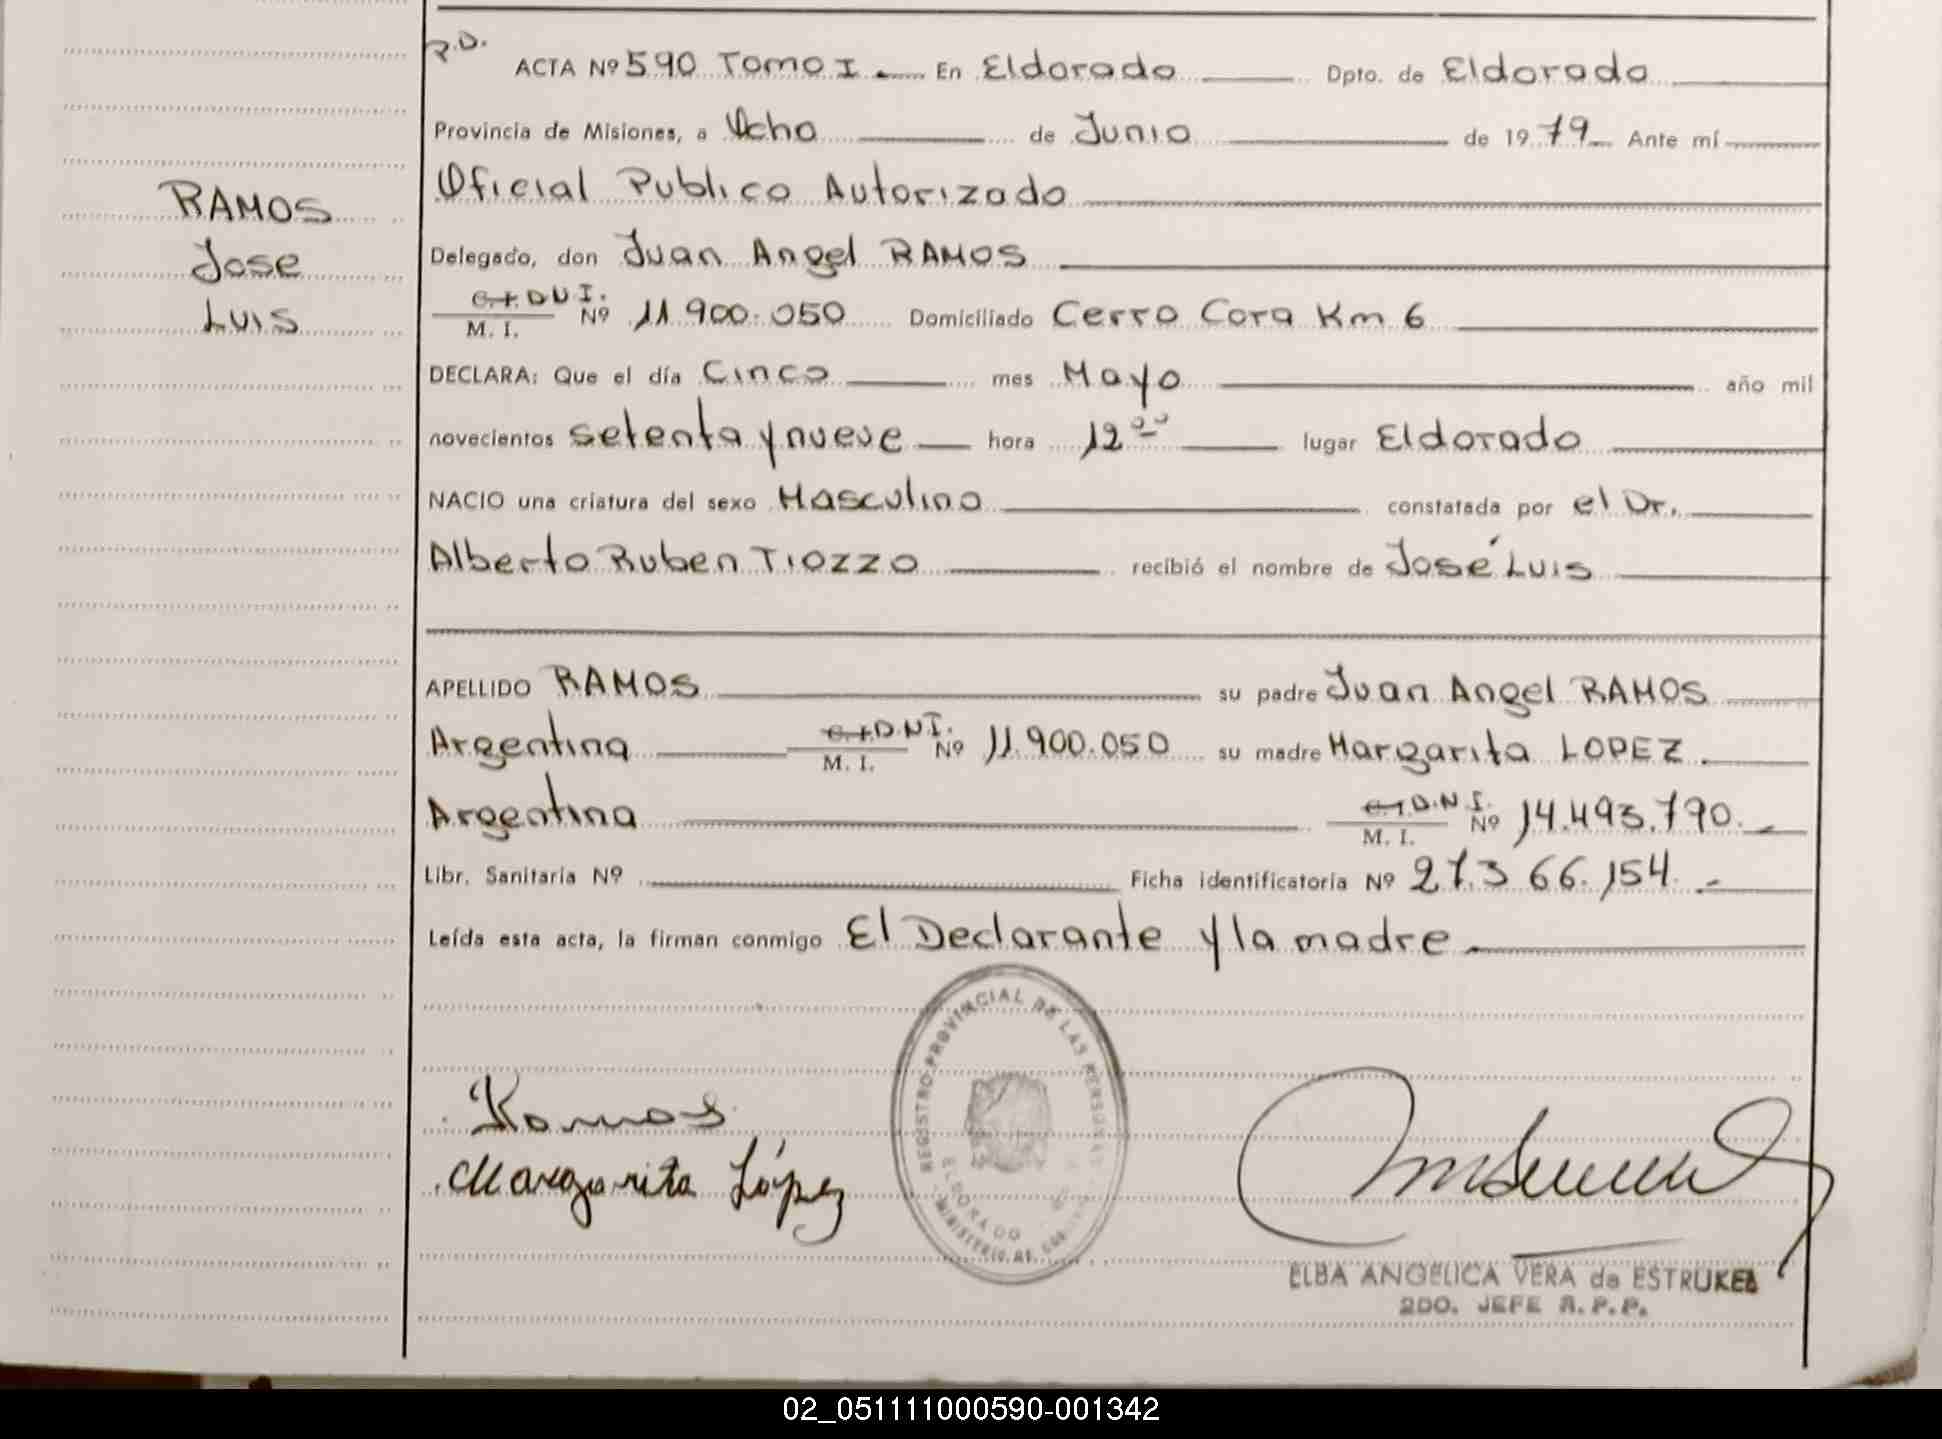 P.D.
ACTA Nº 590 Tomo I. En Eldorado Dpto. de Eldorado
Provincia de Misiones, a Ocho de Junio de 1979 Ante mí
Oficial Publico Autorizado
RAMOS
Jose
Luis
Delegado, don Juan Angel RAMOS
C.I. D.N.I. M. I. Nº 11.900.050 Domiciliado Cerro Cora Km 6
DECLARA: Que el día Cinco mes Mayo año mil
novecientos setenta y nueve hora 12 00 lugar Eldorado
NACIO una criatura del sexo Masculino constatada por el Dr.
Alberto Ruben TIOZZO recibió el nombre de José Luis
APELLIDO RAMOS su padre Juan Angel RAMOS
Argentina C.I. D.N.I. M. I. Nº 11.900.050 su madre Margarita LOPEZ.
Argentina C.I. D.N.I. M. I. Nº 14.493.790.-
Libr. Sanitaria Nº Ficha identificatoria Nº 27.366.154.-
Leída esta acta, la firman conmigo El Declarante y la madre
REGISTRO PROVINCIAL DE LAS PERSONAS
ELDORADO
MINISTERIO DE GOB
Ramos
Margarita López
ELBA ANGELICA VERA de ESTRUKEL
2DO. JEFE R.P.P.
02_051111000590-001342